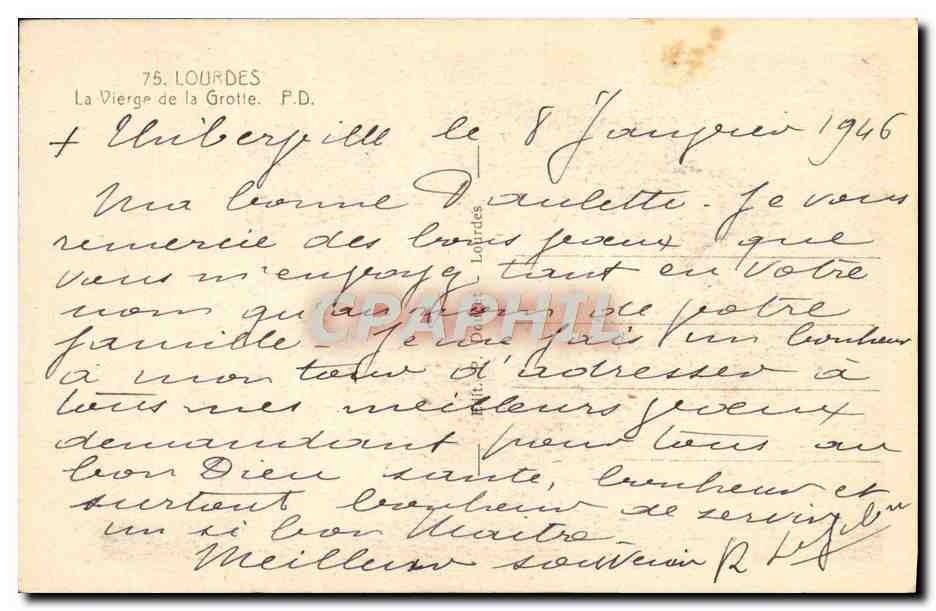 75. LOURDES
La Vierge de la Grotte. P.D.
+ le 8 Janvier 1946
Ma bonne Paulette. Je vous
remercie des bons vœux que
vous m'envoyez tant en votre
nom qu'au nom de votre
famille - Je me fais un bonheur
à mon tour d'adresser à
tous mes meilleurs vœux
demandant pour tous au
bon Dieu santé, bonheur et
surtout bonheur de servir
un si bon Maitre.
Meilleur souvenir R
Edit. P. - Lourdes
CPAPHIL